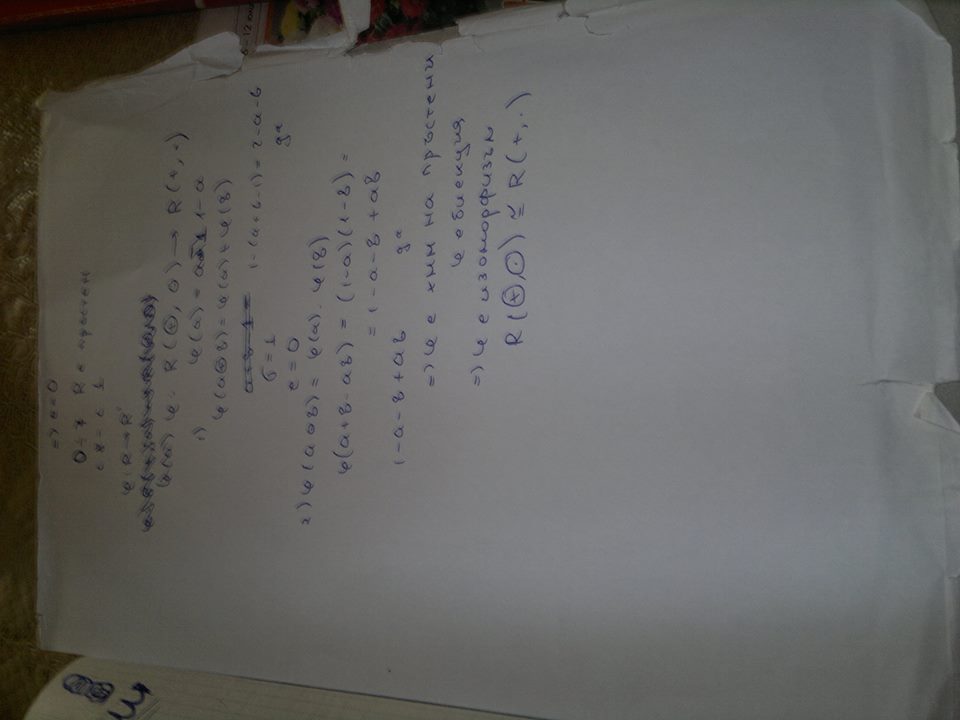 => e = 0
0 ÷ 7 R е пръстен
с 1
φ: R → R'
φ(a) φ: R (⊕, ⊙) → R (+, ·)
φ(a) = 1 - a
1) φ(a⊕b) = φ(a) + φ(b)
1 - (a + b - 1) = 2 - a - b
да
σ = 1
e = 0
2) φ(a⊙b) = φ(a) . φ(b)
φ(a + b - ab) = (1 - a) (1 - b) =
= 1 - a - b + ab
1 - a - b + ab да
=> φ е хмм на пръстени
φ е биекция
=> φ е изоморфизъм
R (⊕, ⊙) ≅ R (+, ·)
6-12